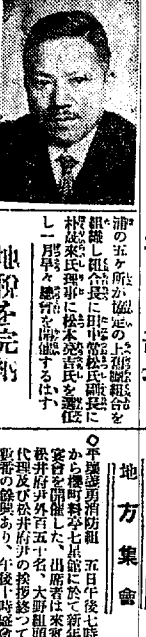 浦の五ヶ所が協定の上聯組合を
組織し組合長に田中常松氏副長に
朴義來氏理事に松本亮吉氏を選任
し一月早々總會を開催するはず
地稅を完納
地方集會
◇平壤護勇消防組 五日午後七時
から櫻町料亭七星館に於て新年
宴會を開催した、出席者は來賓
松井府尹外百五十名、大野組頭
代理及び松井府尹の挨拶終つて
餘興あり、午後十時盛會